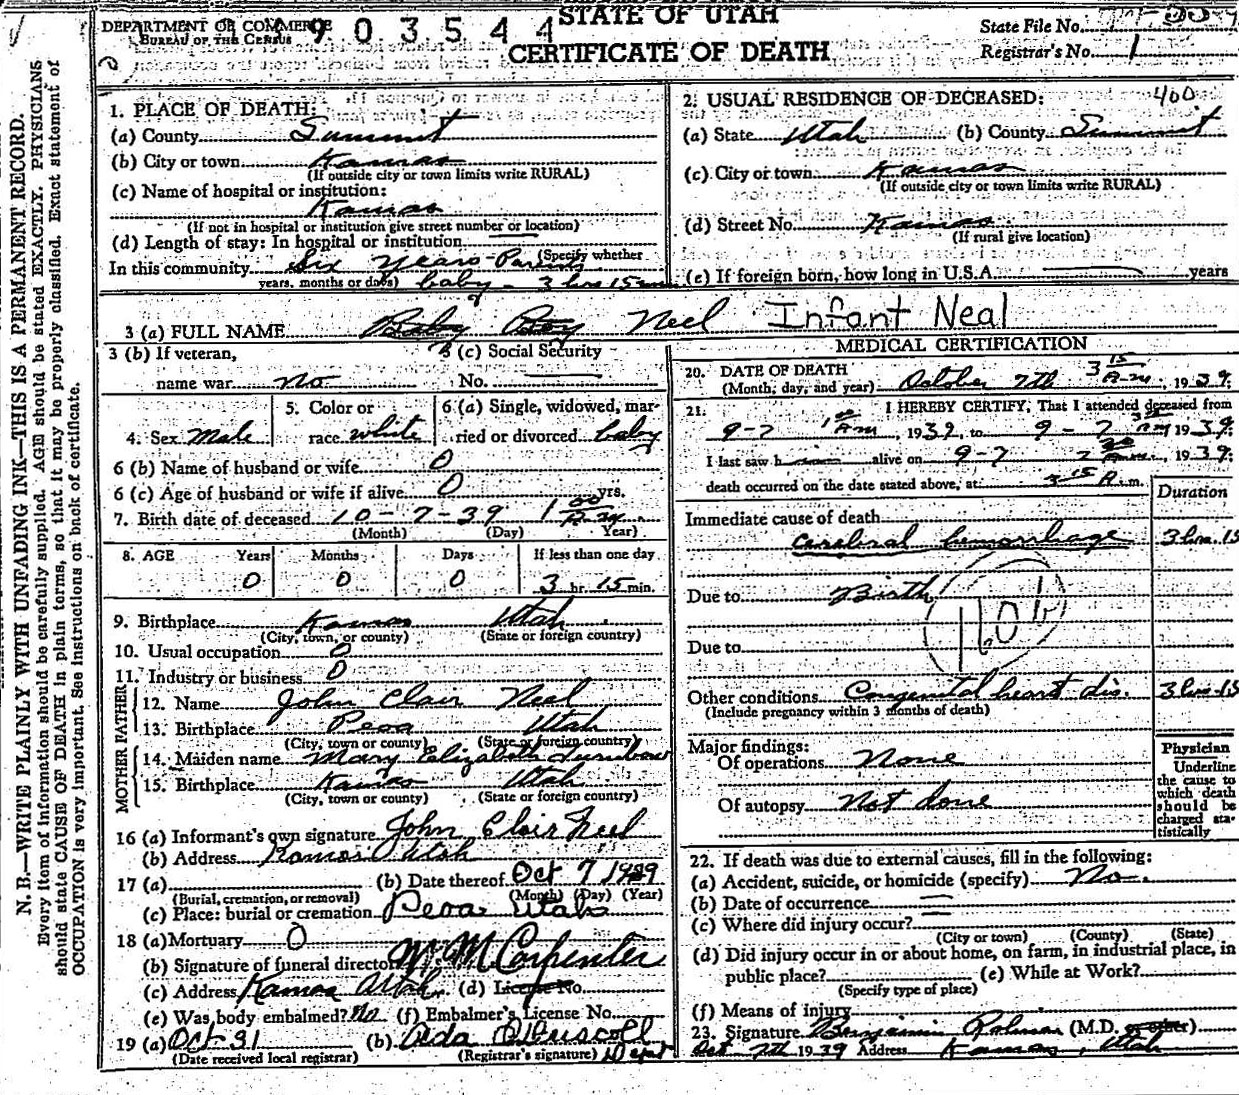 DEPARTMENT OF COMMERCE
BUREAU OF THE CENSUS
903544
STATE OF UTAH
CERTIFICATE OF DEATH
State File No.
Registrar's No. 1
N. B.—WRITE PLAINLY WITH UNFADING INK—THIS IS A PERMANENT RECORD.
Every item of information should be carefully supplied. AGE should be stated EXACTLY. PHYSICIANS
should state CAUSE OF DEATH in plain terms, so that it may be properly classified. Exact statement of
OCCUPATION is very important. See instructions on back of certificate.
1. PLACE OF DEATH:
(a) County Summit
(b) City or town Kamas
(If outside city or town limits write RURAL)
(c) Name of hospital or institution:
Kamas
(If not in hospital or institution give street number or location)
(d) Length of stay: In hospital or institution
(Specify whether
In this community Six years - Parents
years, months or days) baby - 3 hrs 15 min
2. USUAL RESIDENCE OF DECEASED: 400
(a) State Utah (b) County Summit
(c) City or town Kamas
(If outside city or town limits write RURAL)
(d) Street No. Kamas
(If rural give location)
(e) If foreign born, how long in U.S.A. years
3 (a) FULL NAME Baby Boy Neel Infant Neal
3 (b) If veteran,
name war No
3 (c) Social Security
No.
4. Sex Male
5. Color or
race white
6 (a) Single, widowed, mar-
ried or divorced baby
6 (b) Name of husband or wife 0
6 (c) Age of husband or wife if alive 0 yrs.
7. Birth date of deceased 10-7-39 1 00 A.M.
(Month) (Day) (Year)
8. AGE Years Months Days If less than one day
0 0 0 3 hr. 15 min.
9. Birthplace Kamas Utah
(City, town, or county) (State or foreign country)
10. Usual occupation 0
11. Industry or business 0
FATHER
12. Name John Clair Neel
13. Birthplace Peoa Utah
(City, town or county) (State or foreign country)
MOTHER
14. Maiden name Mary Elizabeth
15. Birthplace Kamas Utah
(City, town or county) (State or foreign country)
16 (a) Informant's own signature John Clair Neel
(b) Address Kamas Utah
17 (a) (b) Date thereof Oct 7 1939
(Burial, cremation, or removal) (Month) (Day) (Year)
(c) Place: burial or cremation Peoa Utah
18 (a) Mortuary 0
(b) Signature of funeral director W M Carpenter
(c) Address Kamas Utah (d) License No.
(e) Was body embalmed? No (f) Embalmer's License No.
19 (a) Oct 31 (b) Ada O'Driscoll
(Date received local registrar) (Registrar's signature) Dept
MEDICAL CERTIFICATION
20. DATE OF DEATH 3 15 A.M.
(Month, day, and year) October 7th, 1939.
21. I HEREBY CERTIFY, That I attended deceased from
9-7 1 00 AM, 1939, to 9-7 3 15 AM 1939.
I last saw h alive on 9-7, 1939.
death occurred on the date stated above, at 3 15 A.m.
Duration
Immediate cause of death
Cerebral hemorrhage 3 hrs. 15
Due to Birth
160b
Due to
Other conditions Congenital heart dis. 3 hrs-15
(Include pregnancy within 3 months of death)
Major findings:
Of operations None
Of autopsy Not done
Physician
Underline
the cause to
which death
should be
charged sta-
tistically
22. If death was due to external causes, fill in the following:
(a) Accident, suicide, or homicide (specify) No.
(b) Date of occurrence
(c) Where did injury occur?
(City or town) (County) (State)
(d) Did injury occur in or about home, on farm, in industrial place, in
public place? (e) While at Work?
(Specify type of place)
(f) Means of injury
23. Signature Benjamin (M.D. or other)
Oct. 7th 1939 Address Kamas, Utah